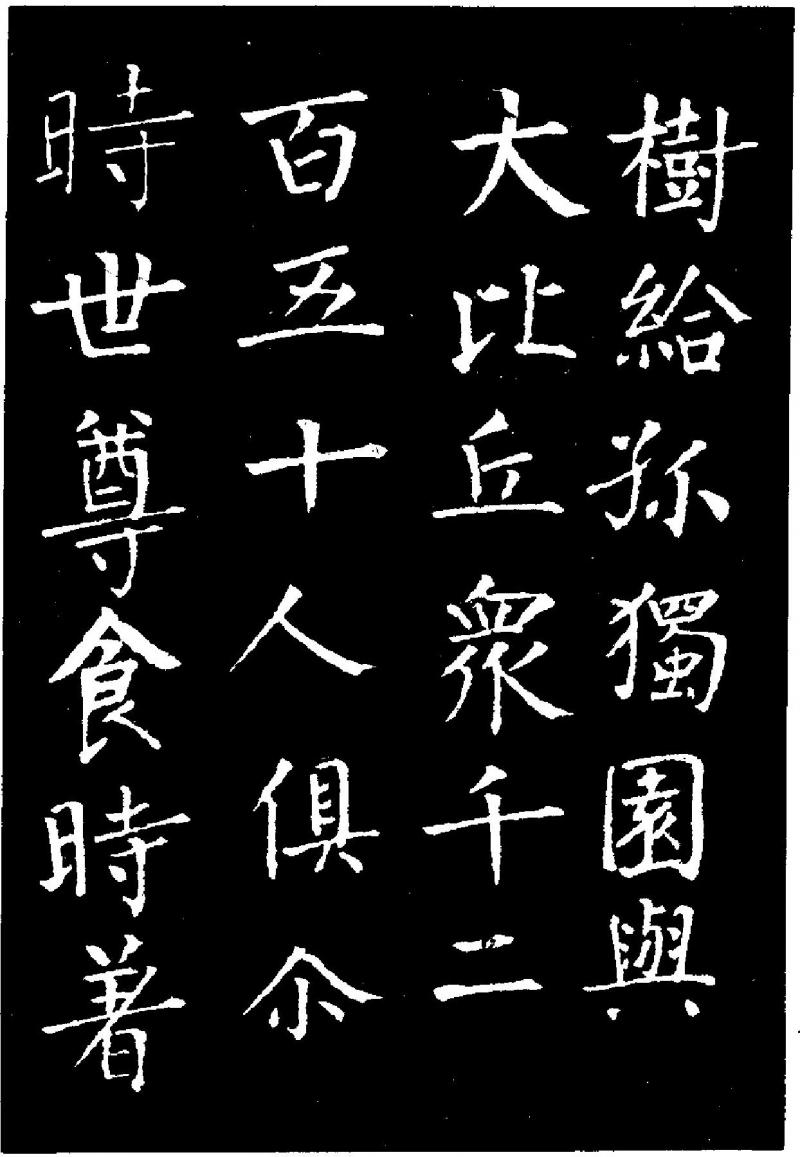 樹給孤獨園與
大比丘衆千二
百五十人俱尒
時世尊食時著